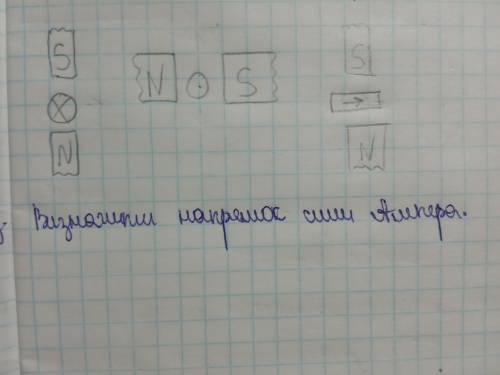 S
N
N S
S
N
Визначити напрямок сили Ампера.